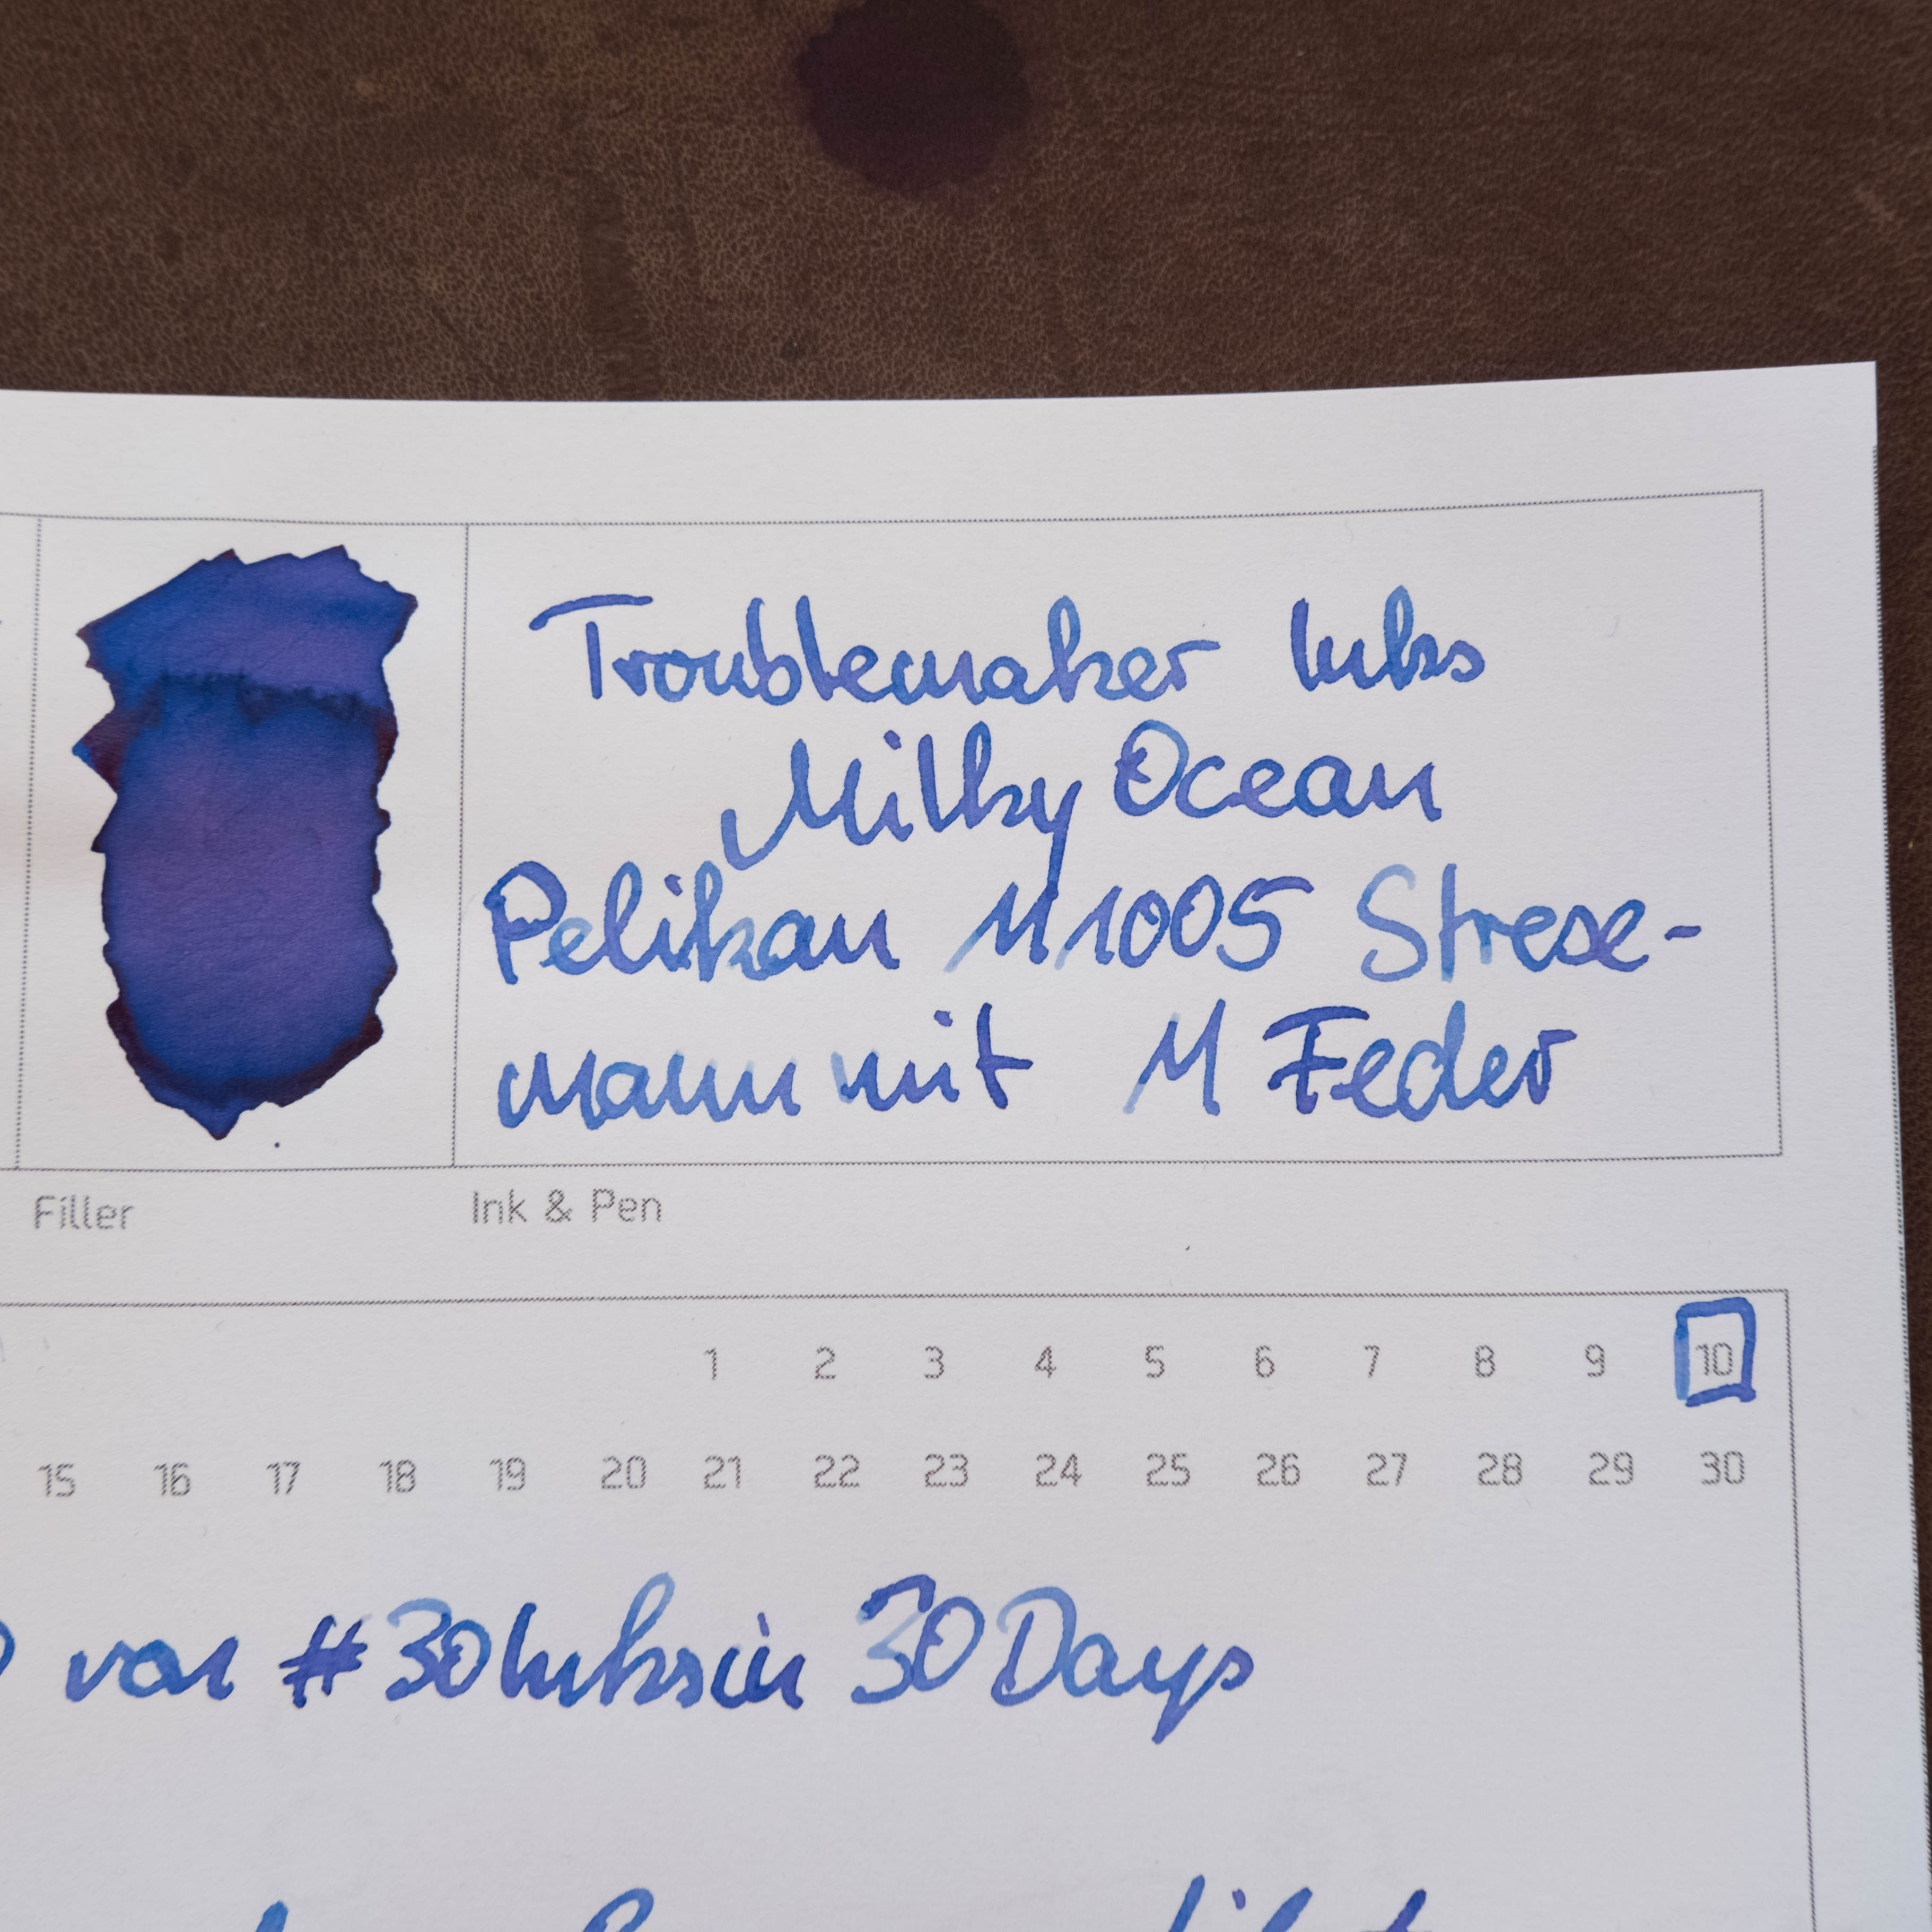 Troublemaker Inks
Milky Ocean
Pelikan M1005 Strese-
mann mit M Feder
Filler
Ink & Pen
1 2 3 4 5 6 7 8 9 10
15 16 17 18 19 20 21 22 23 24 25 26 27 28 29 30
von #30Inksin 30Days